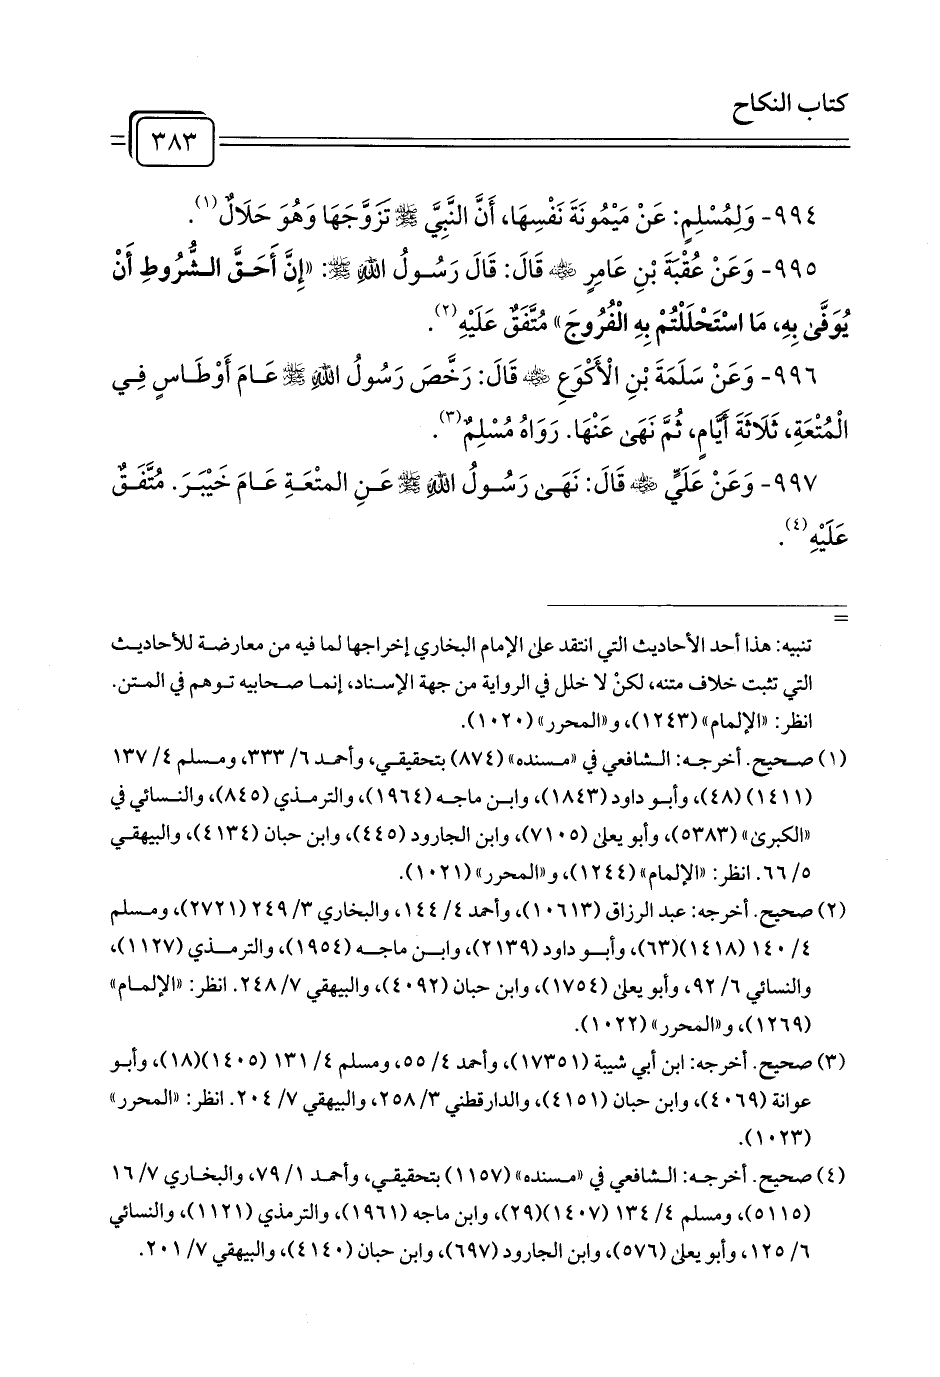 كتاب النكاح
٣٨٣
٩٩٤- وَلِمُسْلِمٍ: عَنْ مَيْمُونَةَ نَفْسِهَا، أَنَّ النَّبِيَّ ﷺ تَزَوَّجَهَا وَهُوَ حَلَالٌ(١).
٩٩٥- وَعَنْ عُقْبَةَ بْنِ عَامِرٍ رضي الله عنه قَالَ: قَالَ رَسُولُ اللهِ ﷺ: «إِنَّ أَحَقَّ الشُّرُوطِ أَنْ
يُوَفَّى بِهِ، مَا اسْتَحْلَلْتُمْ بِهِ الْفُرُوجَ» مُتَّفَقٌ عَلَيْهِ(٢).
٩٩٦- وَعَنْ سَلَمَةَ بْنِ الْأَكْوَعِ رضي الله عنه قَالَ: رَخَّصَ رَسُولُ اللهِ ﷺ عَامَ أَوْطَاسٍ فِي
الْمُتْعَةِ، ثَلَاثَةَ أَيَّامٍ، ثُمَّ نَهَى عَنْهَا. رَوَاهُ مُسْلِمٌ(٣).
٩٩٧- وَعَنْ عَلَيٍّ رضي الله عنه قَالَ: نَهَى رَسُولُ اللهِ ﷺ عَنِ المتْعَةِ عَامَ خَيْبَرَ. مُتَّفَقٌ
عَلَيْهِ(٤).
=
تنبيه: هذا أحد الأحاديث التي انتقد على الإمام البخاري إخراجها لما فيه من معارضة للأحاديث
التي تثبت خلاف متنه، لكنْ لا خلل في الرواية من جهة الإسناد، إنما صحابيه توهم في المتن.
انظر: «الإلمام» (١٢٤٣)، و«المحرر» (١٠٢٠).
(١) صحيح. أخرجه: الشافعي في «مسنده» (٨٧٤) بتحقيقي، وأحمد ٦/ ٣٣٣، ومسلم ٤/ ١٣٧
(١٤١١) (٤٨)، وأبو داود (١٨٤٣)، وابن ماجه (١٩٦٤)، والترمذي (٨٤٥)، والنسائي في
«الكبرى» (٥٣٨٣)، وأبو يعلى (٧١٠٥)، وابن الجارود (٤٤٥)، وابن حبان (٤١٣٤)، والبيهقي
٥/ ٦٦. انظر: «الإلمام» (١٢٤٤)، و«المحرر» (١٠٢١).
(٢) صحيح. أخرجه: عبد الرزاق (١٠٦١٣)، وأحمد ٤/ ١٤٤، والبخاري ٣/ ٢٤٩ (٢٧٢١)، ومسلم
٤/ ١٤٠ (١٤١٨)(٦٣)، وأبو داود (٢١٣٩)، وابن ماجه (١٩٥٤)، والترمذي (١١٢٧)،
والنسائي ٦/ ٩٢، وأبو يعلى (١٧٥٤)، وابن حبان (٤٠٩٢)، والبيهقي ٧/ ٢٤٨. انظر: «الإلمام»
(١٢٦٩)، و«المحرر» (١٠٢٢).
(٣) صحيح. أخرجه: ابن أبي شيبة (١٧٣٥١)، وأحمد ٤/ ٥٥، ومسلم ٤/ ١٣١ (١٤٠٥)(١٨)، وأبو
عوانة (٤٠٦٩)، وابن حبان (٤١٥١)، والدارقطني ٣/ ٢٥٨، والبيهقي ٧/ ٢٠٤. انظر: «المحرر»
(١٠٢٣).
(٤) صحيح. أخرجه: الشافعي في «مسنده» (١١٥٧) بتحقيقي، وأحمد ١/ ٧٩، والبخاري ٧/ ١٦
(٥١١٥)، ومسلم ٤/ ١٣٤ (١٤٠٧)(٢٩)، وابن ماجه (١٩٦١)، والترمذي (١١٢١)، والنسائي
٦/ ١٢٥، وأبو يعلى (٥٧٦)، وابن الجارود (٦٩٧)، وابن حبان (٤١٤٠)، والبيهقي ٧/ ٢٠١.